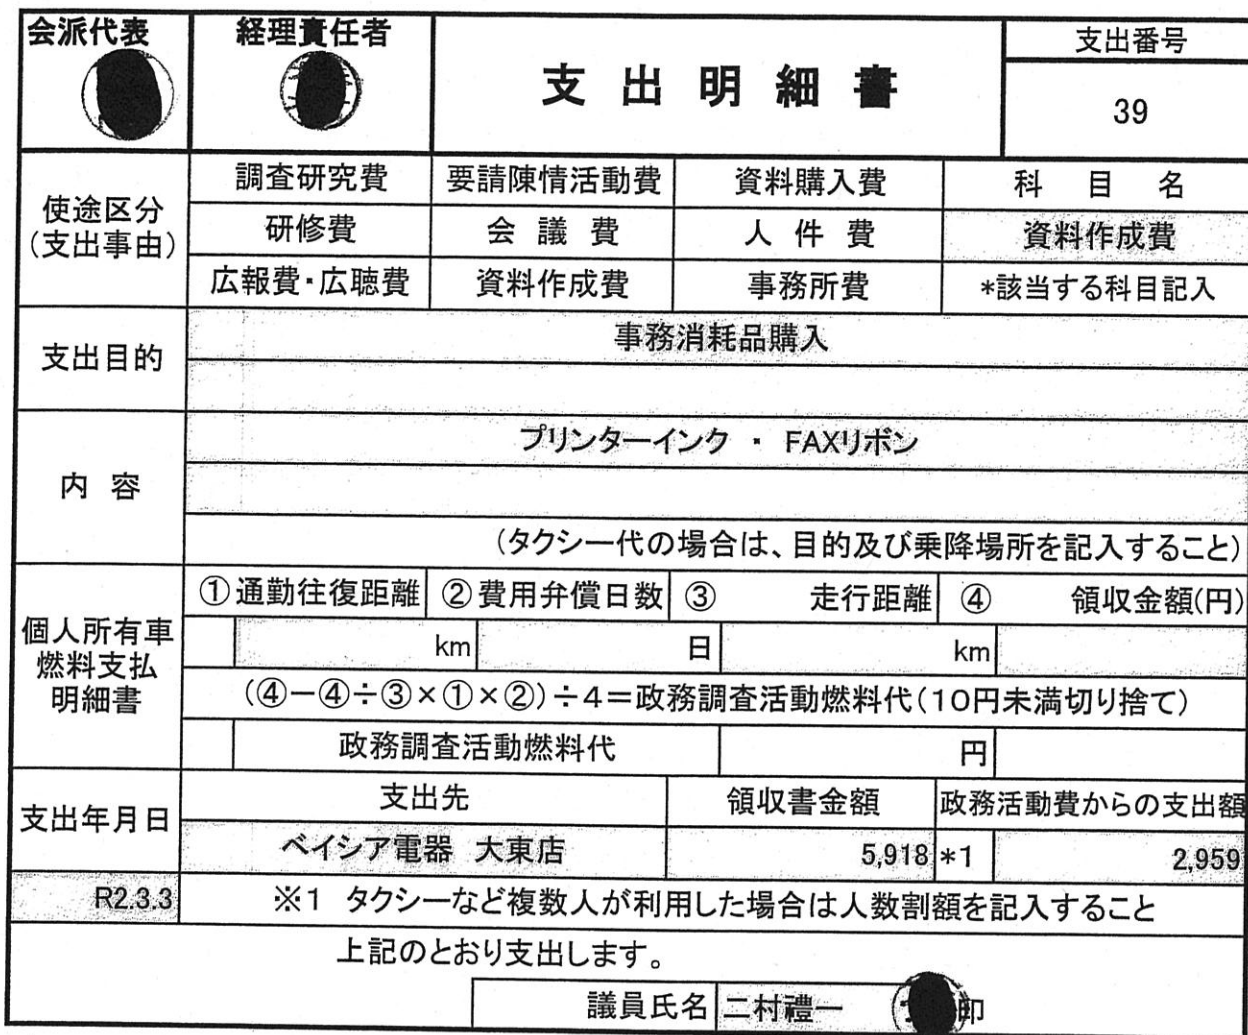 会派代表 経理責任者 支出明細書 支出番号
39
使途区分(支出事由) 調査研究費 要請陳情活動費 資料購入費 科目名
研修費 会議費 人件費 資料作成費
広報費・広聴費 資料作成費 事務所費 *該当する科目記入
支出目的 事務消耗品購入
内容 プリンターインク ・ FAXリボン
(タクシー代の場合は、目的及び乗降場所を記入すること)
個人所有車燃料支払明細書 ①通勤往復距離 ②費用弁償日数 ③ 走行距離 ④ 領収金額(円)
km 日 km
(④－④÷③×①×②)÷4＝政務調査活動燃料代(10円未満切り捨て)
政務調査活動燃料代 円
支出年月日 支出先 領収書金額 政務活動費からの支出額
ベイシア電器 大東店 5,918 *1 2,959
R2.3.3 ※1 タクシーなど複数人が利用した場合は人数割額を記入すること
上記のとおり支出します。
議員氏名 二村禮一 印